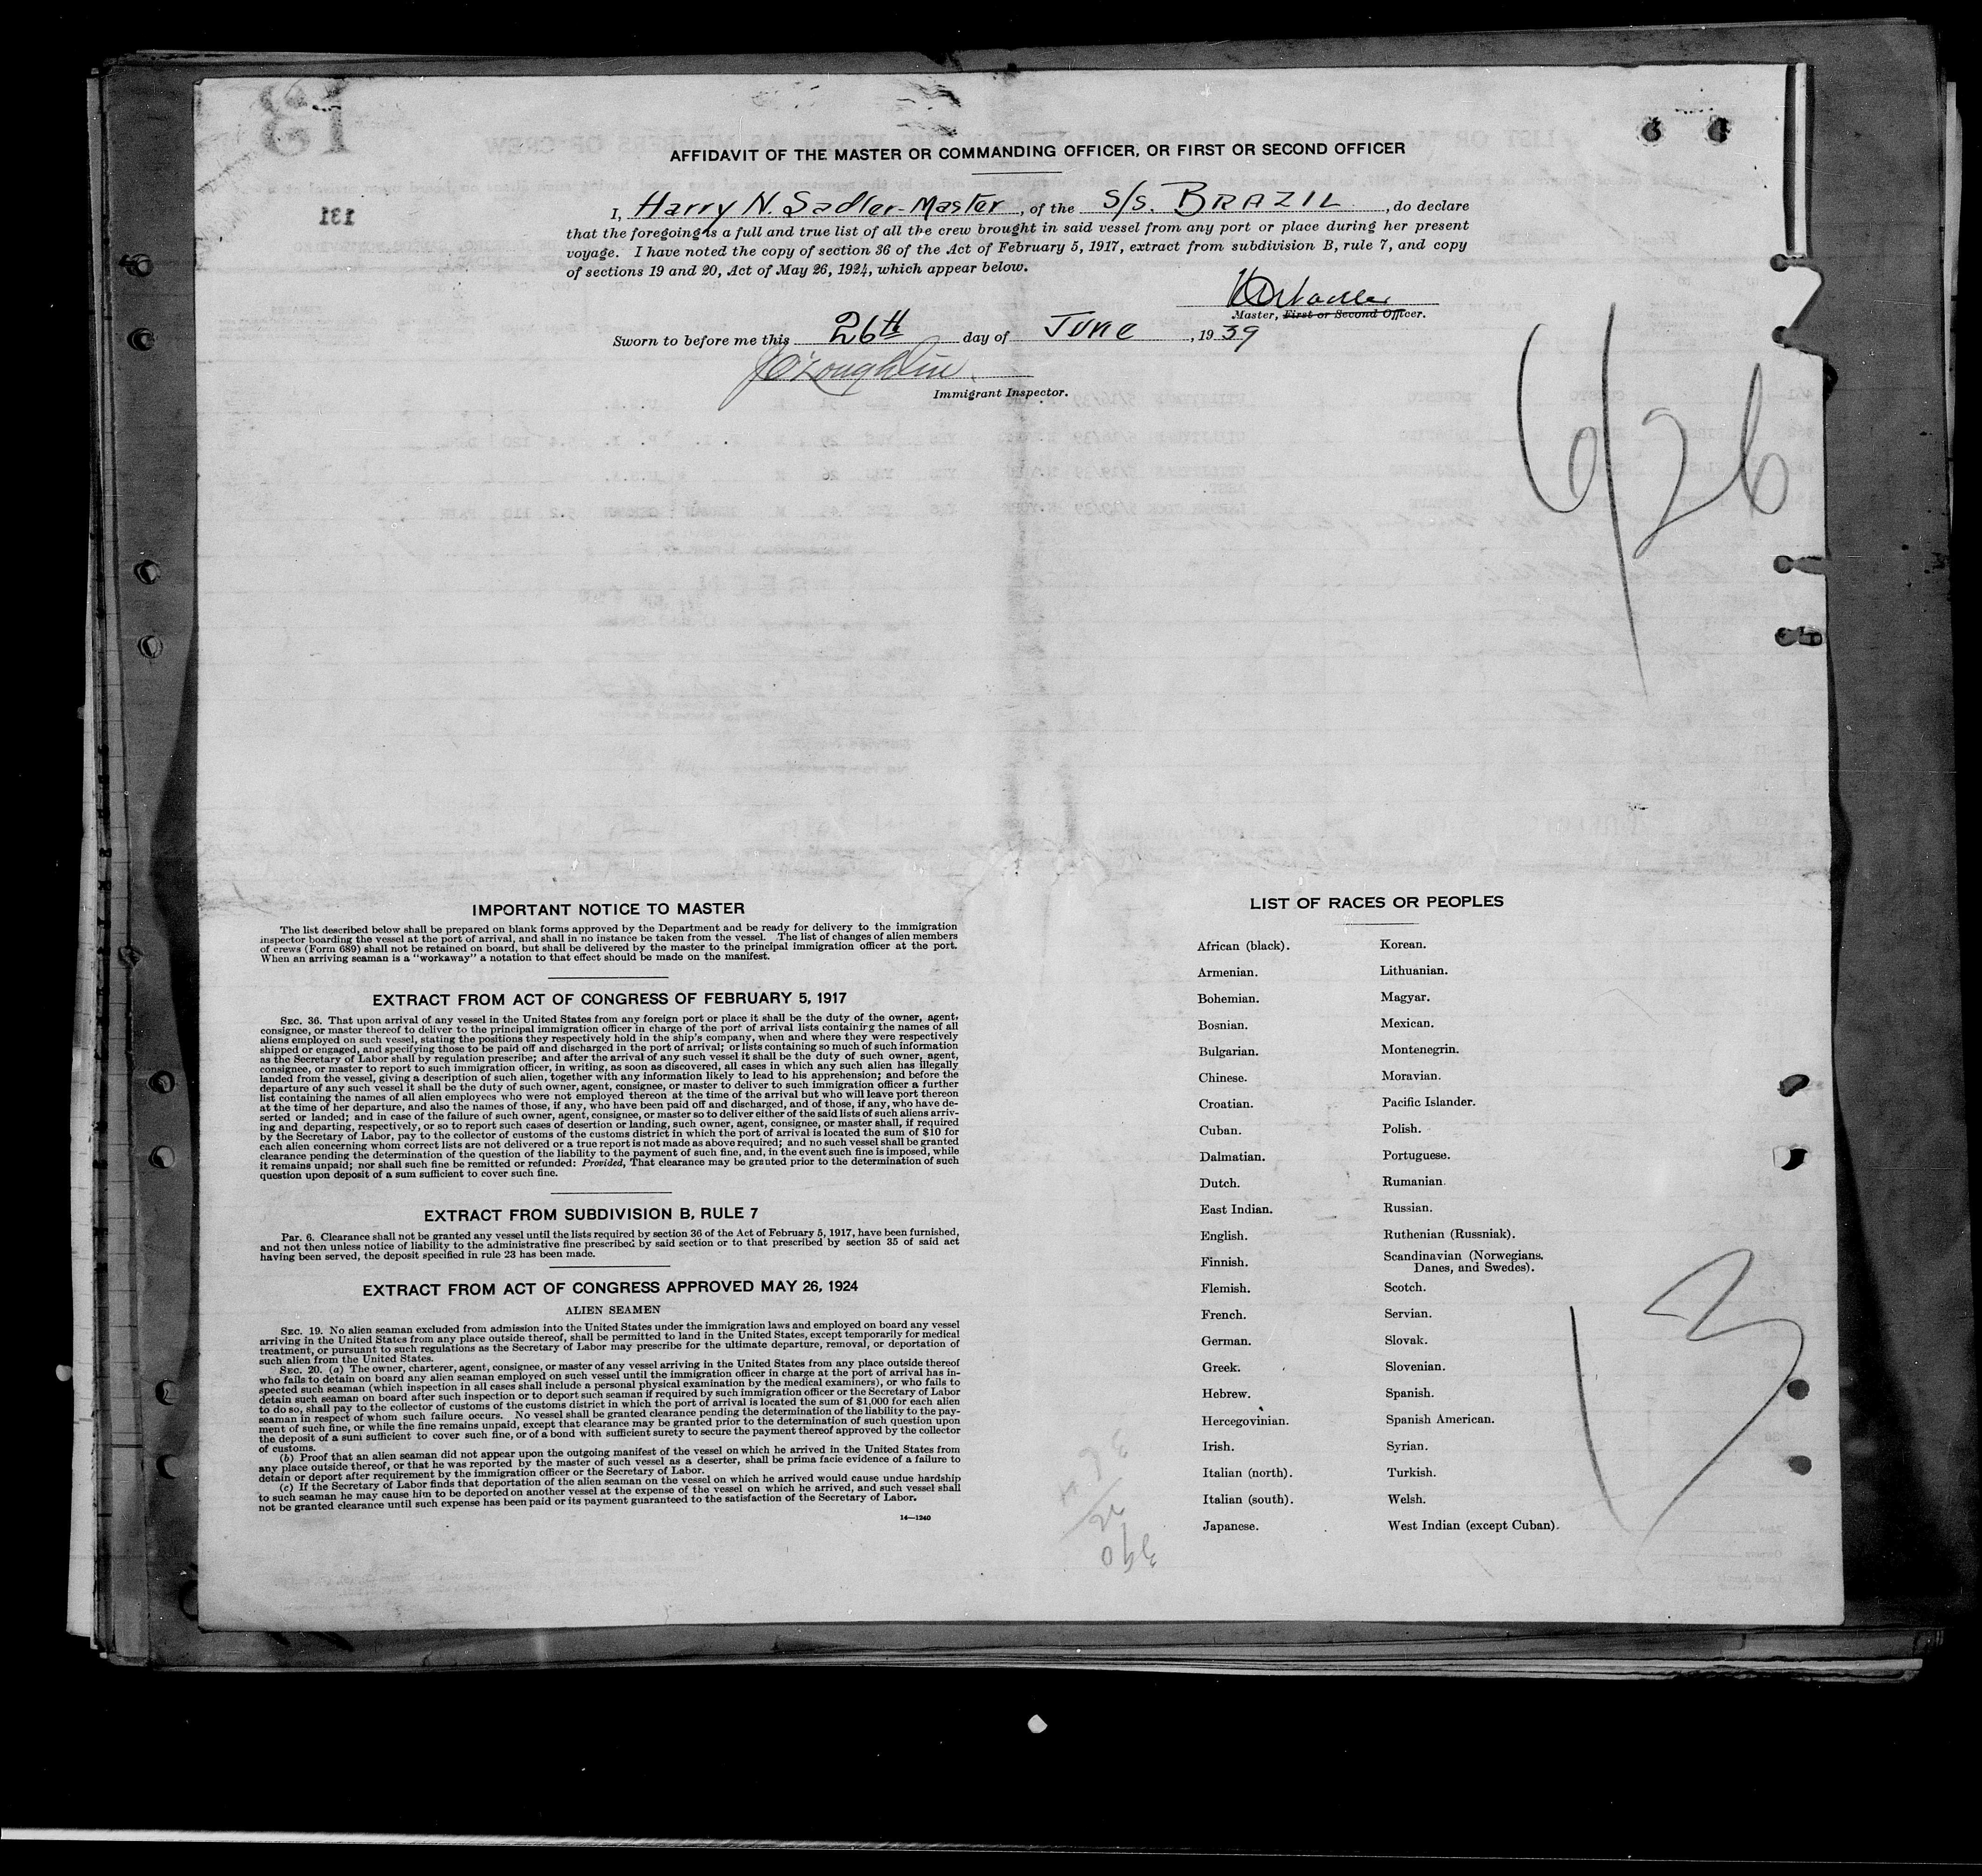 AFFIDAVIT OF THE MASTER OR COMMANDING OFFICER, OR FIRST OR SECOND OFFICER
I, Harry N. Sadler - Master, of the S/S. BRAZIL, do declare
that the foregoing is a full and true list of all the crew brought in said vessel from any port or place during her present
voyage. I have noted the copy of section 36 of the Act of February 5, 1917, extract from subdivision B, rule 7, and copy
of sections 19 and 20, Act of May 26, 1924, which appear below.
Master, First or Second Officer.
Sworn to before me this 26th day of June, 1939
J O'Loughlin
Immigrant Inspector.
6/26
131
13
IMPORTANT NOTICE TO MASTER
The list described below shall be prepared on blank forms approved by the Department and be ready for delivery to the immigration
inspector boarding the vessel at the port of arrival, and shall in no instance be taken from the vessel. The list of changes of alien members
of crews (Form 689) shall not be retained on board, but shall be delivered by the master to the principal immigration officer at the port.
When an arriving seaman is a "workaway" a notation to that effect should be made on the manifest.
EXTRACT FROM ACT OF CONGRESS OF FEBRUARY 5, 1917
SEC. 36. That upon arrival of any vessel in the United States from any foreign port or place it shall be the duty of the owner, agent,
consignee, or master thereof to deliver to the principal immigration officer in charge of the port of arrival lists containing the names of all
aliens employed on such vessel, stating the positions they respectively hold in the ship's company, when and where they were respectively
shipped or engaged, and specifying those to be paid off and discharged in the port of arrival; or lists containing so much of such information
as the Secretary of Labor shall by regulation prescribe; and after the arrival of any such vessel it shall be the duty of such owner, agent,
consignee, or master to report to such immigration officer, in writing, as soon as discovered, all cases in which any such alien has illegally
landed from the vessel, giving a description of such alien, together with any information likely to lead to his apprehension; and before the
departure of any such vessel it shall be the duty of such owner, agent, consignee, or master to deliver to such immigration officer a further
list containing the names of all alien employees who were not employed thereon at the time of the arrival but who will leave port thereon
at the time of her departure, and also the names of those, if any, who have been paid off and discharged, and of those, if any, who have de-
serted or landed; and in case of the failure of such owner, agent, consignee, or master so to deliver either of the said lists of such aliens arriv-
ing and departing, respectively, or so to report such cases of desertion or landing, such owner, agent, consignee, or master shall, if required
by the Secretary of Labor, pay to the collector of customs of the customs district in which the port of arrival is located the sum of $10 for
each alien concerning whom correct lists are not delivered or a true report is not made as above required; and no such vessel shall be granted
clearance pending the determination of the question of the liability to the payment of such fine, and, in the event such fine is imposed, while
it remains unpaid; nor shall such fine be remitted or refunded: Provided, That clearance may be granted prior to the determination of such
question upon deposit of a sum sufficient to cover such fine.
EXTRACT FROM SUBDIVISION B, RULE 7
Par. 6. Clearance shall not be granted any vessel until the lists required by section 36 of the Act of February 5, 1917, have been furnished,
and not then unless notice of liability to the administrative fine prescribed by said section or to that prescribed by section 35 of said act
having been served, the deposit specified in rule 23 has been made.
EXTRACT FROM ACT OF CONGRESS APPROVED MAY 26, 1924
ALIEN SEAMEN
SEC. 19. No alien seaman excluded from admission into the United States under the immigration laws and employed on board any vessel
arriving in the United States from any place outside thereof, shall be permitted to land in the United States, except temporarily for medical
treatment, or pursuant to such regulations as the Secretary of Labor may prescribe for the ultimate departure, removal, or deportation of
such alien from the United States.
SEC. 20. (a) The owner, charterer, agent, consignee, or master of any vessel arriving in the United States from any place outside thereof
who fails to detain on board any alien seaman employed on such vessel until the immigration officer in charge at the port of arrival has in-
spected such seaman (which inspection in all cases shall include a personal physical examination by the medical examiners), or who fails to
detain such seaman on board after such inspection or to deport such seaman if required by such immigration officer or the Secretary of Labor
to do so, shall pay to the collector of customs of the customs district in which the port of arrival is located the sum of $1,000 for each alien
seaman in respect of whom such failure occurs. No vessel shall be granted clearance pending the determination of the liability to the pay-
ment of such fine, or while the fine remains unpaid, except that clearance may be granted prior to the determination of such question upon
the deposit of a sum sufficient to cover such fine, or of a bond with sufficient surety to secure the payment thereof approved by the collector
of customs.
(b) Proof that an alien seaman did not appear upon the outgoing manifest of the vessel on which he arrived in the United States from
any place outside thereof, or that he was reported by the master of such vessel as a deserter, shall be prima facie evidence of a failure to
detain or deport after requirement by the immigration officer or the Secretary of Labor.
(c) If the Secretary of Labor finds that deportation of the alien seaman on the vessel on which he arrived would cause undue hardship
to such seaman he may cause him to be deported on another vessel at the expense of the vessel on which he arrived, and such vessel shall
not be granted clearance until such expense has been paid or its payment guaranteed to the satisfaction of the Secretary of Labor.
14—1240
LIST OF RACES OR PEOPLES
African (black). Korean.
Armenian. Lithuanian.
Bohemian. Magyar.
Bosnian. Mexican.
Bulgarian. Montenegrin.
Chinese. Moravian.
Croatian. Pacific Islander.
Cuban. Polish.
Dalmatian. Portuguese.
Dutch. Rumanian.
East Indian. Russian.
English. Ruthenian (Russniak).
Finnish. Scandinavian (Norwegians,
Danes, and Swedes).
Flemish. Scotch.
French. Servian.
German. Slovak.
Greek. Slovenian.
Hebrew. Spanish.
Hercegovinian. Spanish American.
Irish. Syrian.
Italian (north). Turkish.
Italian (south). Welsh.
Japanese. West Indian (except Cuban).
13